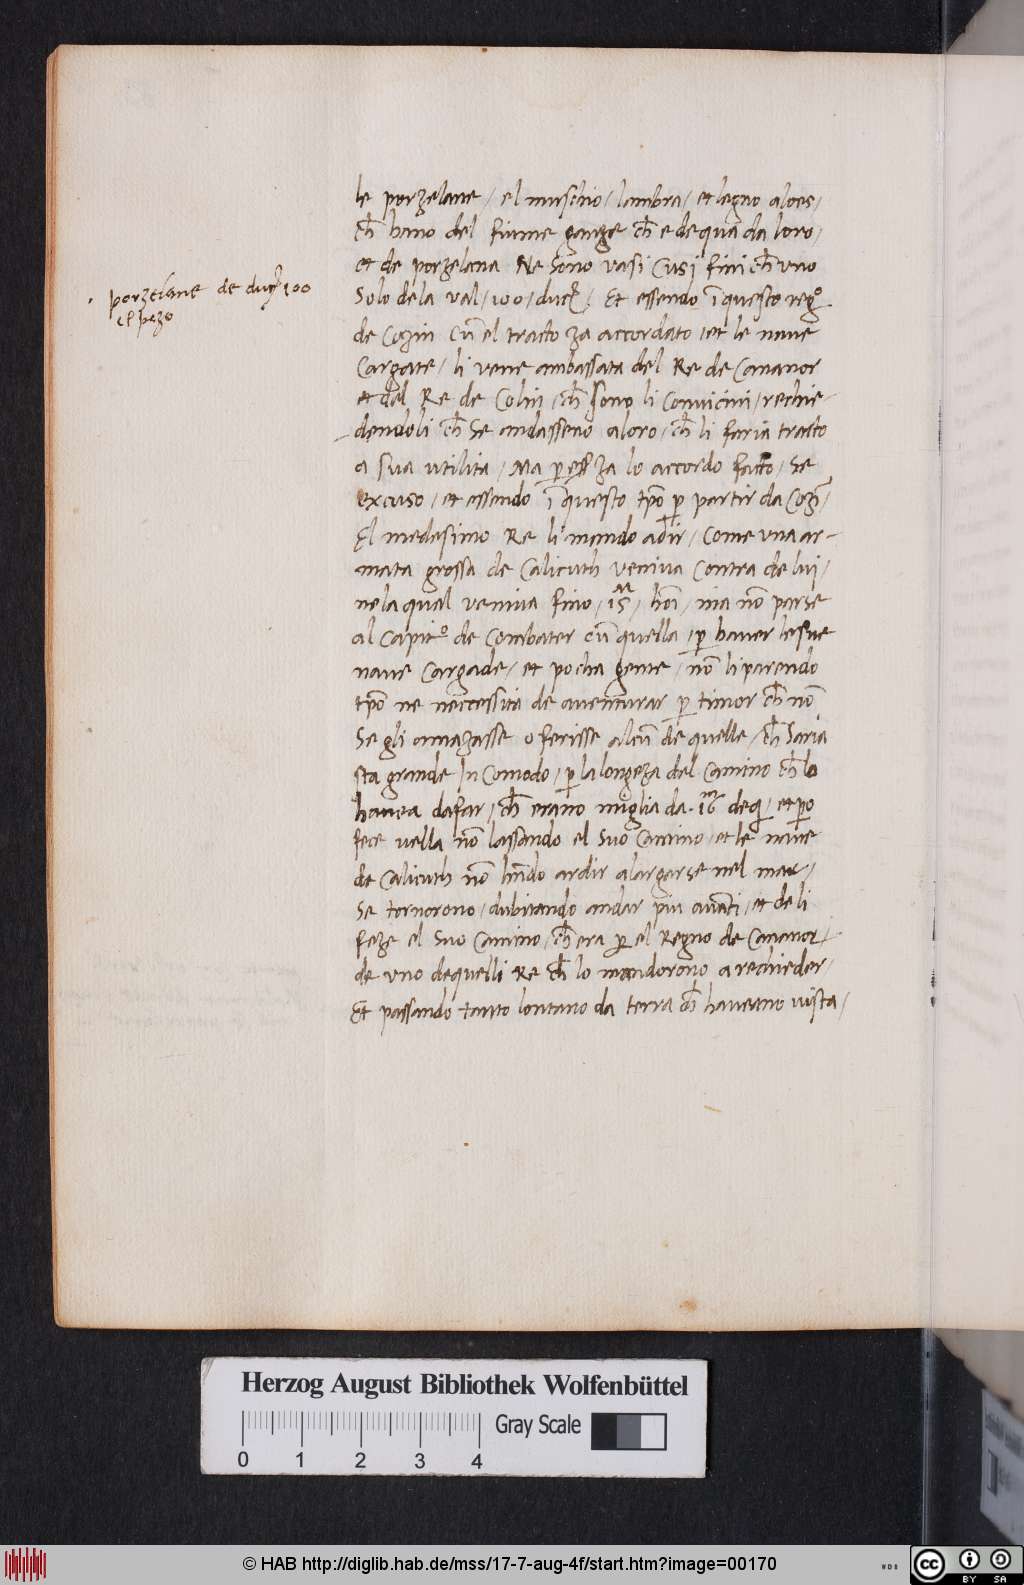 porzelane de duc̄ 100
el pezo
le porzelane / el muschio / lambra / et legno aloes /
ch̄ hano del fiume gange ch̄ e de qua da loro /
et de porzelana Ne sono vasi cusi fini ch̄ vno
solo de la val / 100 / duc̄ / Et essendo ī questo regº
de Cozin cū el tracto za accordato et le naue
Cargate / li vene ambassata del Re de Cananor
et dal Re de Colin / ch̄ sono li convicini / rechie-
dendoli ch̄ se andasseno a loro / ch̄ li faria tracto
a sua utilita / Ma p̱ za lo accordo facto / Se
excuso / et essendo ī questo tp̄o p̱ partir da Coz̄ /
El medesimo Re li mando a dir / come vna ar-
mata grossa de Calicuth veniva contra de lui /
ne la qual veniva fino / 15ᴹ / hoī / ma nō parse
al capitº de combater cū quella / p̱ haver le sue
naue cargade / et pocha gente / nō li parendo
tp̄o ne neccessità de aventurar p̱ timor ch̄ nō
se gli amazasse o ferisse alcū de quelle / ch̄ saria
sta grande in comodo / p̱ la longeza del camino ch̄ lo
hauea da far / ch̄ erano miglia da 16ᴹ de qi / et p̱o
fece vella nō lassando el suo camino / et le naue
de Calicuth nō hn̄do ardir alargarse nel mar /
se tornorono / dubitando andar piu auāti / et de li
feze el suo camino / ch̄ era p̱ el Regno de Cananor /
de vno de quelli Re ch̄ lo mandorono a rechieder /
Et passando tanto lontano da terra ch̄ haveano vista /
Herzog August Bibliothek Wolfenbüttel
0 1 2 3 4
Gray Scale
© HAB http://diglib.hab.de/mss/17-7-aug-4f/start.htm?image=00170
WDB
cc BY SA